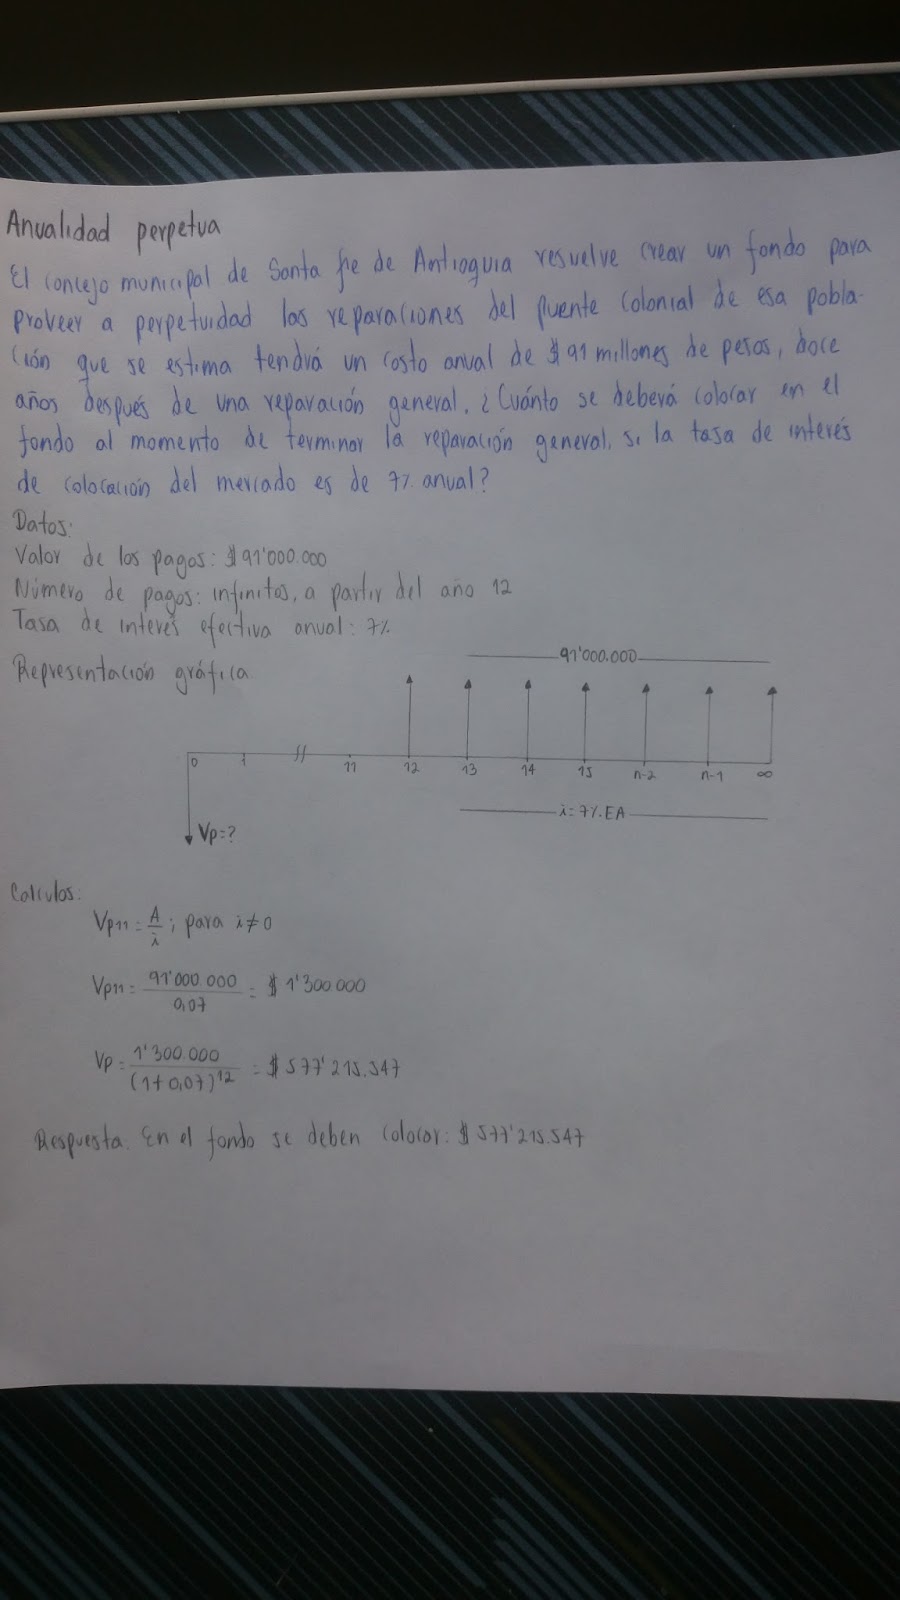 Anualidad perpetua
El concejo municipal de Santa fie de Antioquia resuelve crear un fondo para
proveer a perpetuidad las reparaciones del puente colonial de esa pobla-
ción que se estima tendrá un costo anual de $91 millones de pesos, doce
años después de una reparación general. ¿Cuánto se deberá colocar en el
fondo al momento de terminar la reparación general. si la tasa de interés
de colocación del mercado es de 7% anual?
Datos:
Valor de los pagos: $91'000.000
Número de pagos: infinitos, a partir del año 12
Tasa de interés efectiva anual: 7%
Representación gráfica
91'000.000
0 1 // 11 12 13 14 15 n-2 n-1 ∞
i=7%.EA
Vp=?
Calculos:
Vp11=A/i; para i≠0
Vp11=91'000.000/0,07=$1'300.000
Vp=1'300.000/(1+0,07)^12=$577'215.547
Respuesta. En el fondo se deben colocar: $577'215.547